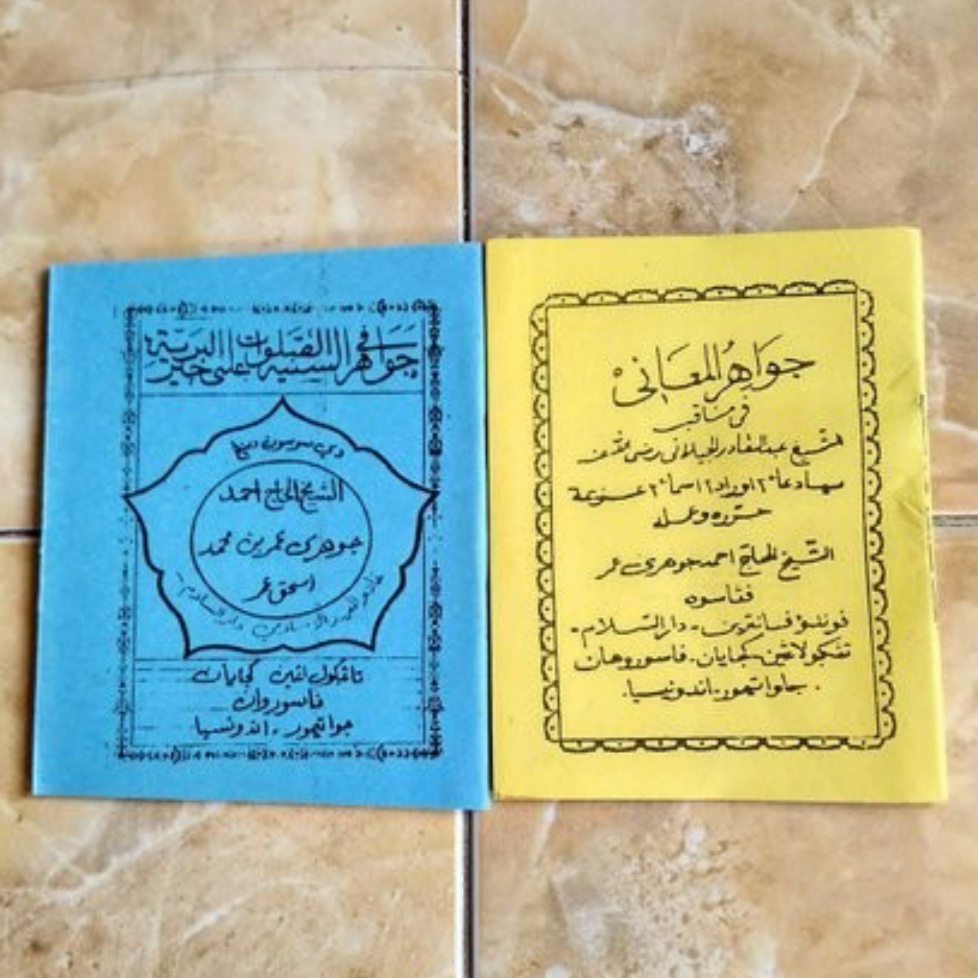 جواهر السنية في الصلوات على خير البرية
دي سوسون اوليه
الشيخ الحاج احمد
جوهري عمر بن محمد
اسحق عمر
دار السلام
تاڠكول اڠين كجايان
فاسوروان
جوا تيمور - اندونسيا
جَوَاهِرُ المَعَانِيْ
في مناقب
الشيخ عبد القادر الجيلاني رضي الله عنه
حرّره وعمله
الشّيخ الحاج احمد جوهري عمر
فڠاسوه
فوندوق فسانترين - دار السّلام -
تڠكولاڠين - كجايان - فاسوروهان
جاوا تيمور - اندونيسيا.